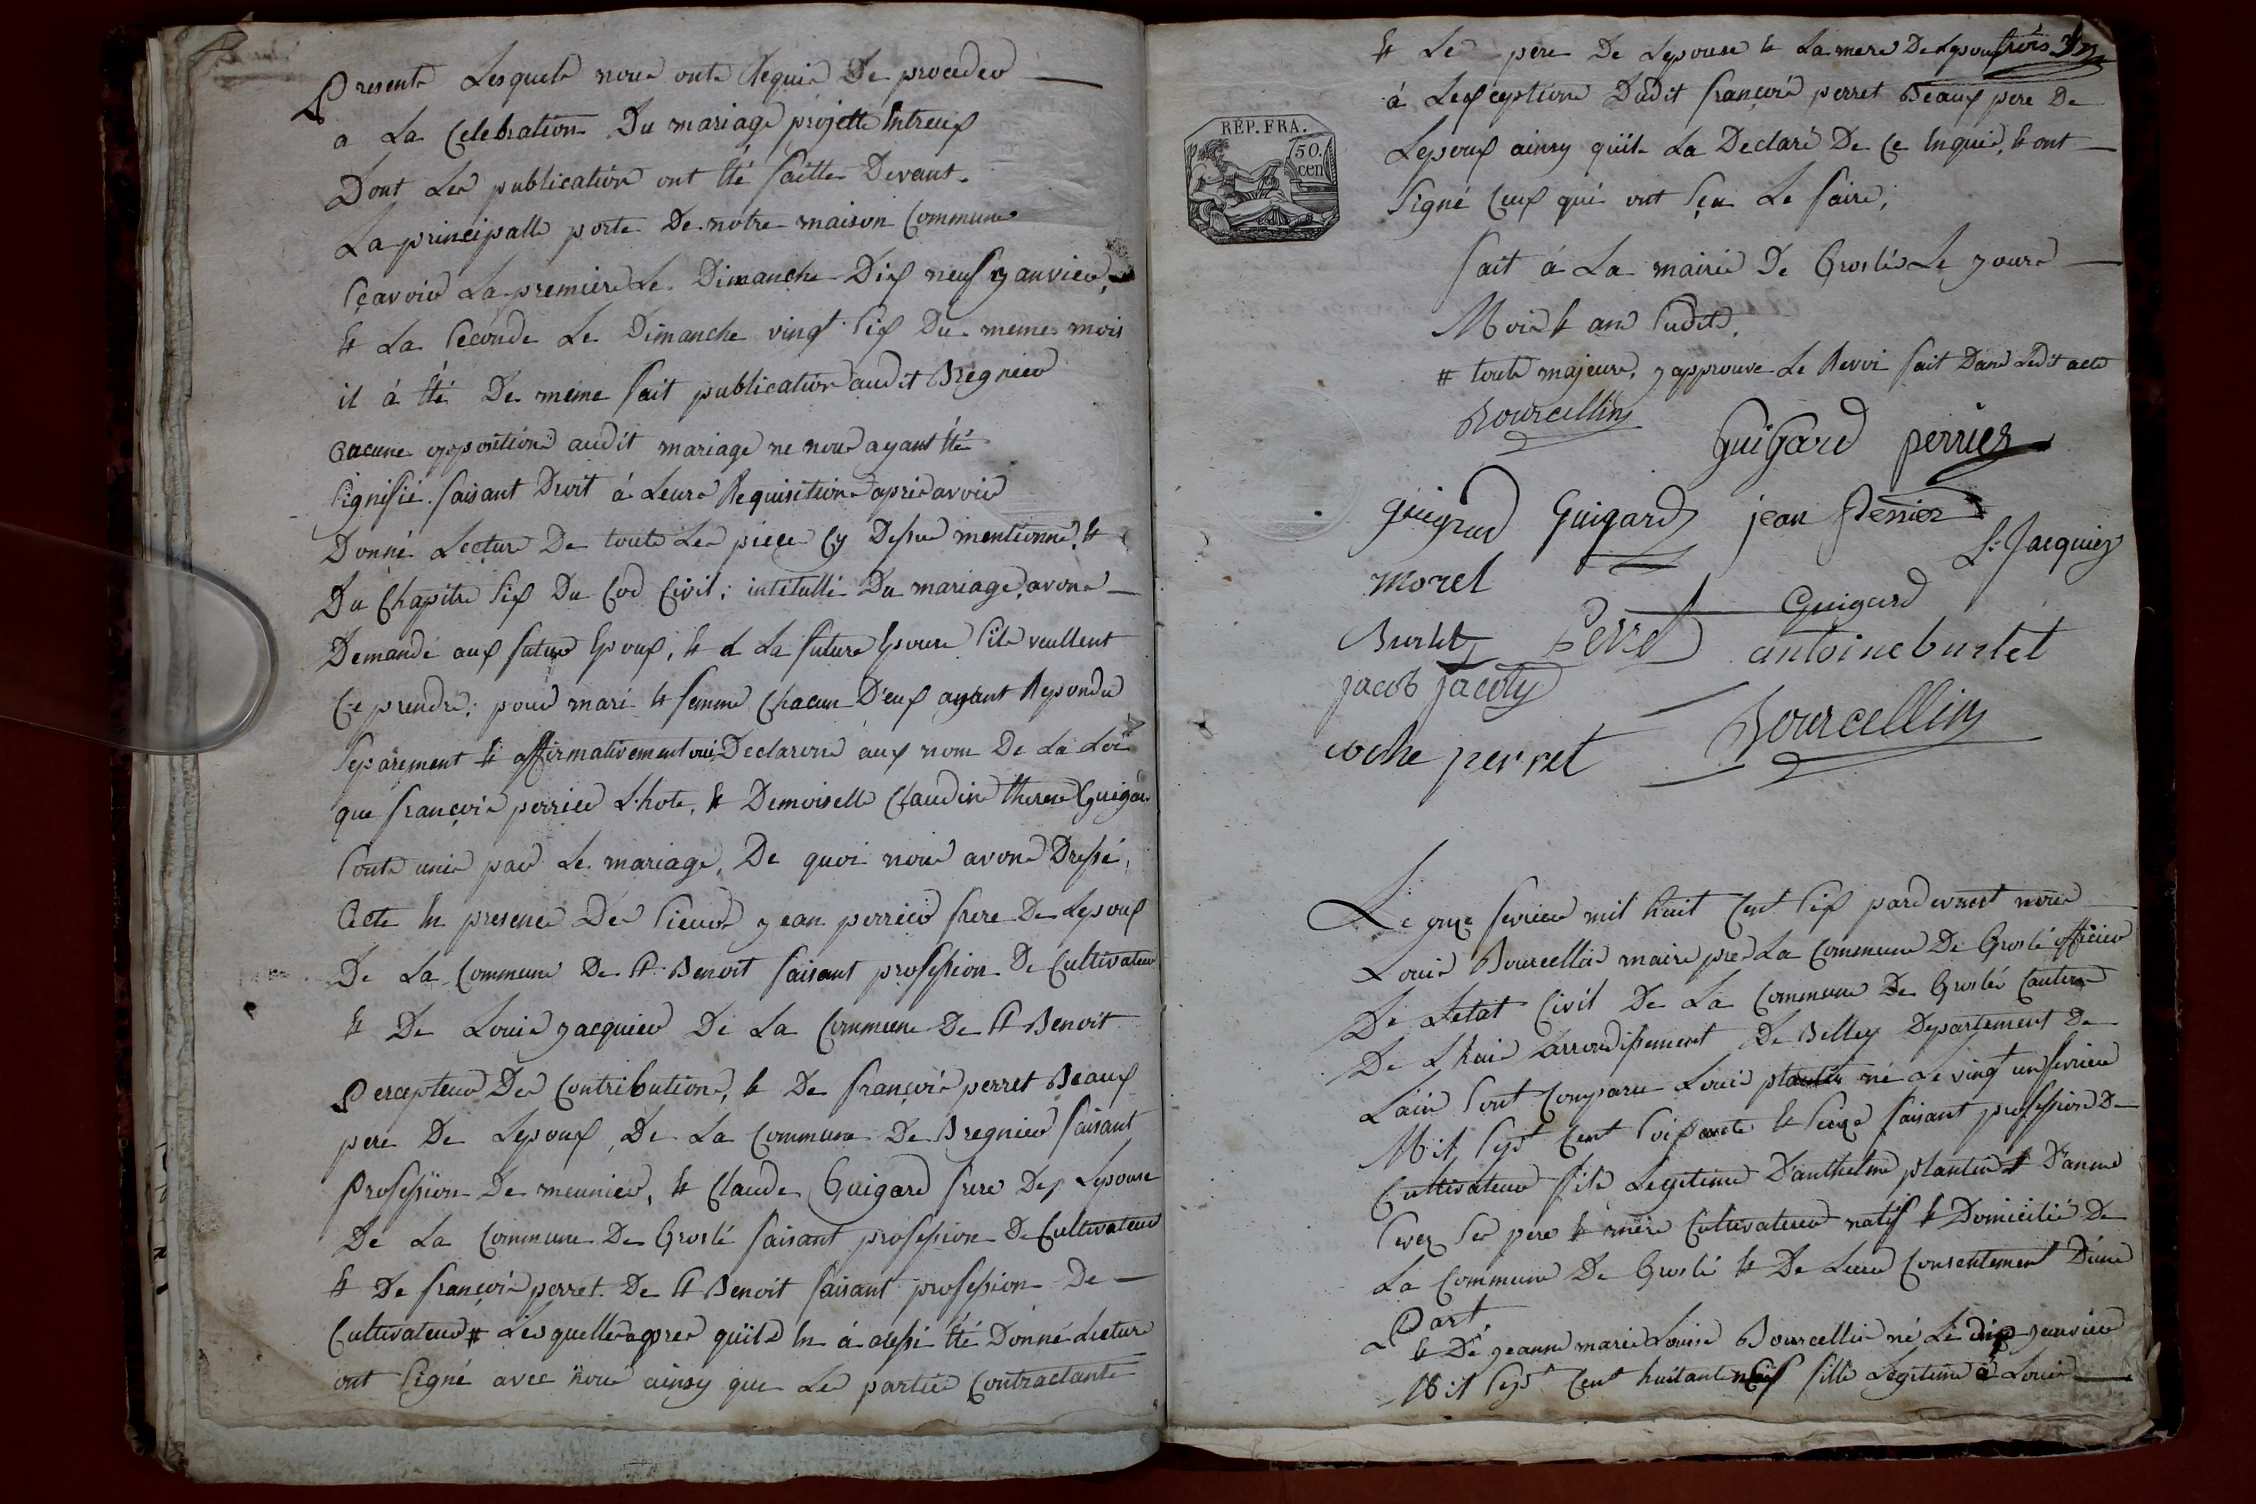 Presents Lesquels nous onts Requis De proceder
a La Celebration Du mariage projetté Entreux
Dont Les publication ont Eté faitte Devant
La principalle porte De notre maison Commune
Sçavoir La premiere Le Dimanche Dix neuf janvier,
Et La Seconde Le Dimanche vingt Six Du meme mois
il á Eté De meme fait publication audit Bregnier
aucune opposition audit mariage ne nous ayant Eté
Signifié faisant Droit á Leurs Requisitions aprés avoir
Donné Lecture De toute Les piece Cy Dessus mentionné, Et
Du Chapitre Six Du Cod Civil; intitullé Du mariage, avons
Demandé aux futur Epoux, Et á La future Epouse S'ils veullent
Ce prendre; pour mari Et femme Chacun D'eux ayant Repondu
Separement Et affirmativement oui Declarons aux nom De La Loi
que françois perrier L'hote, Et Demoiselle Claudine therese Guigar
Sonts unis par Le mariage, De quoi nous avons Dressé,
Acte En presence Des Sieurs jean perrier frere De Lepoux
De La Commune De St Benoit faisant profession De Cultivateur
Et De Louis jacquier De La Commune De St Benoit
Percepteur Des Contributions, Et De françois perret Beaux
pere De Lepoux, De La Commune De Bregnier faisant
Profession De meunier, Et Claude Guigard frere De Lepouse
De La Commune De Groslé faisant profession De Cultivateur
Et De françois perret De St Benoit faisant profession De
Cultivateur # Lesquelles apres qu'ils En á aussi Eté Donné Lecture
ont Signé avec Nous ainsy que Les parties Contractants
Et Le pere De Lepouse Et La mere De Lepoux
á L'exception Dudit françois perret Beaux pere De
Lepoux ainsy qu'il La Declaré De Ce Enquis, Et ont
Signé Ceux qui ont Sçu Le faire,
RÉP. FRA.
50.
cen
fait á La mairie De Groslé Le jours
Mois Et an Sudits,
# touts majeurs, japprouve Le Renvoi fait Dans Ledit acte
Bourcellin
Guigard perrier
Guigard Guigard jean Perrier
L: Jacquier
morel
Guigard
Burlet Perret antoine burlet
jacob jacoty
perret Bourcellin
Le onze fevrier mil huit Cent Six pardevnt nous
Louis Bourcellin maire La Commune De Groslé officier
De Letat Civil De La Commune De Groslé Canton
De Lhuis arrondissement De Belley Departement De
L'ain Sont Comparu Louis plantin né Le vingt un fevrier
Mil Sept Cent Soixante Et Seize faisant profession De
Cultivateur fils Legitime D'anthelme plantin Et D'anne
Ses pere Et mere Cultivateurs natif Et Domicilié De
La Commune De Groslé Et De Leurs Consentement D'une
Part
Et De jeanne marie Louise Bourcellin né Le janvier
Mil Sept Cent huitante neuf fille Legitime á Louis